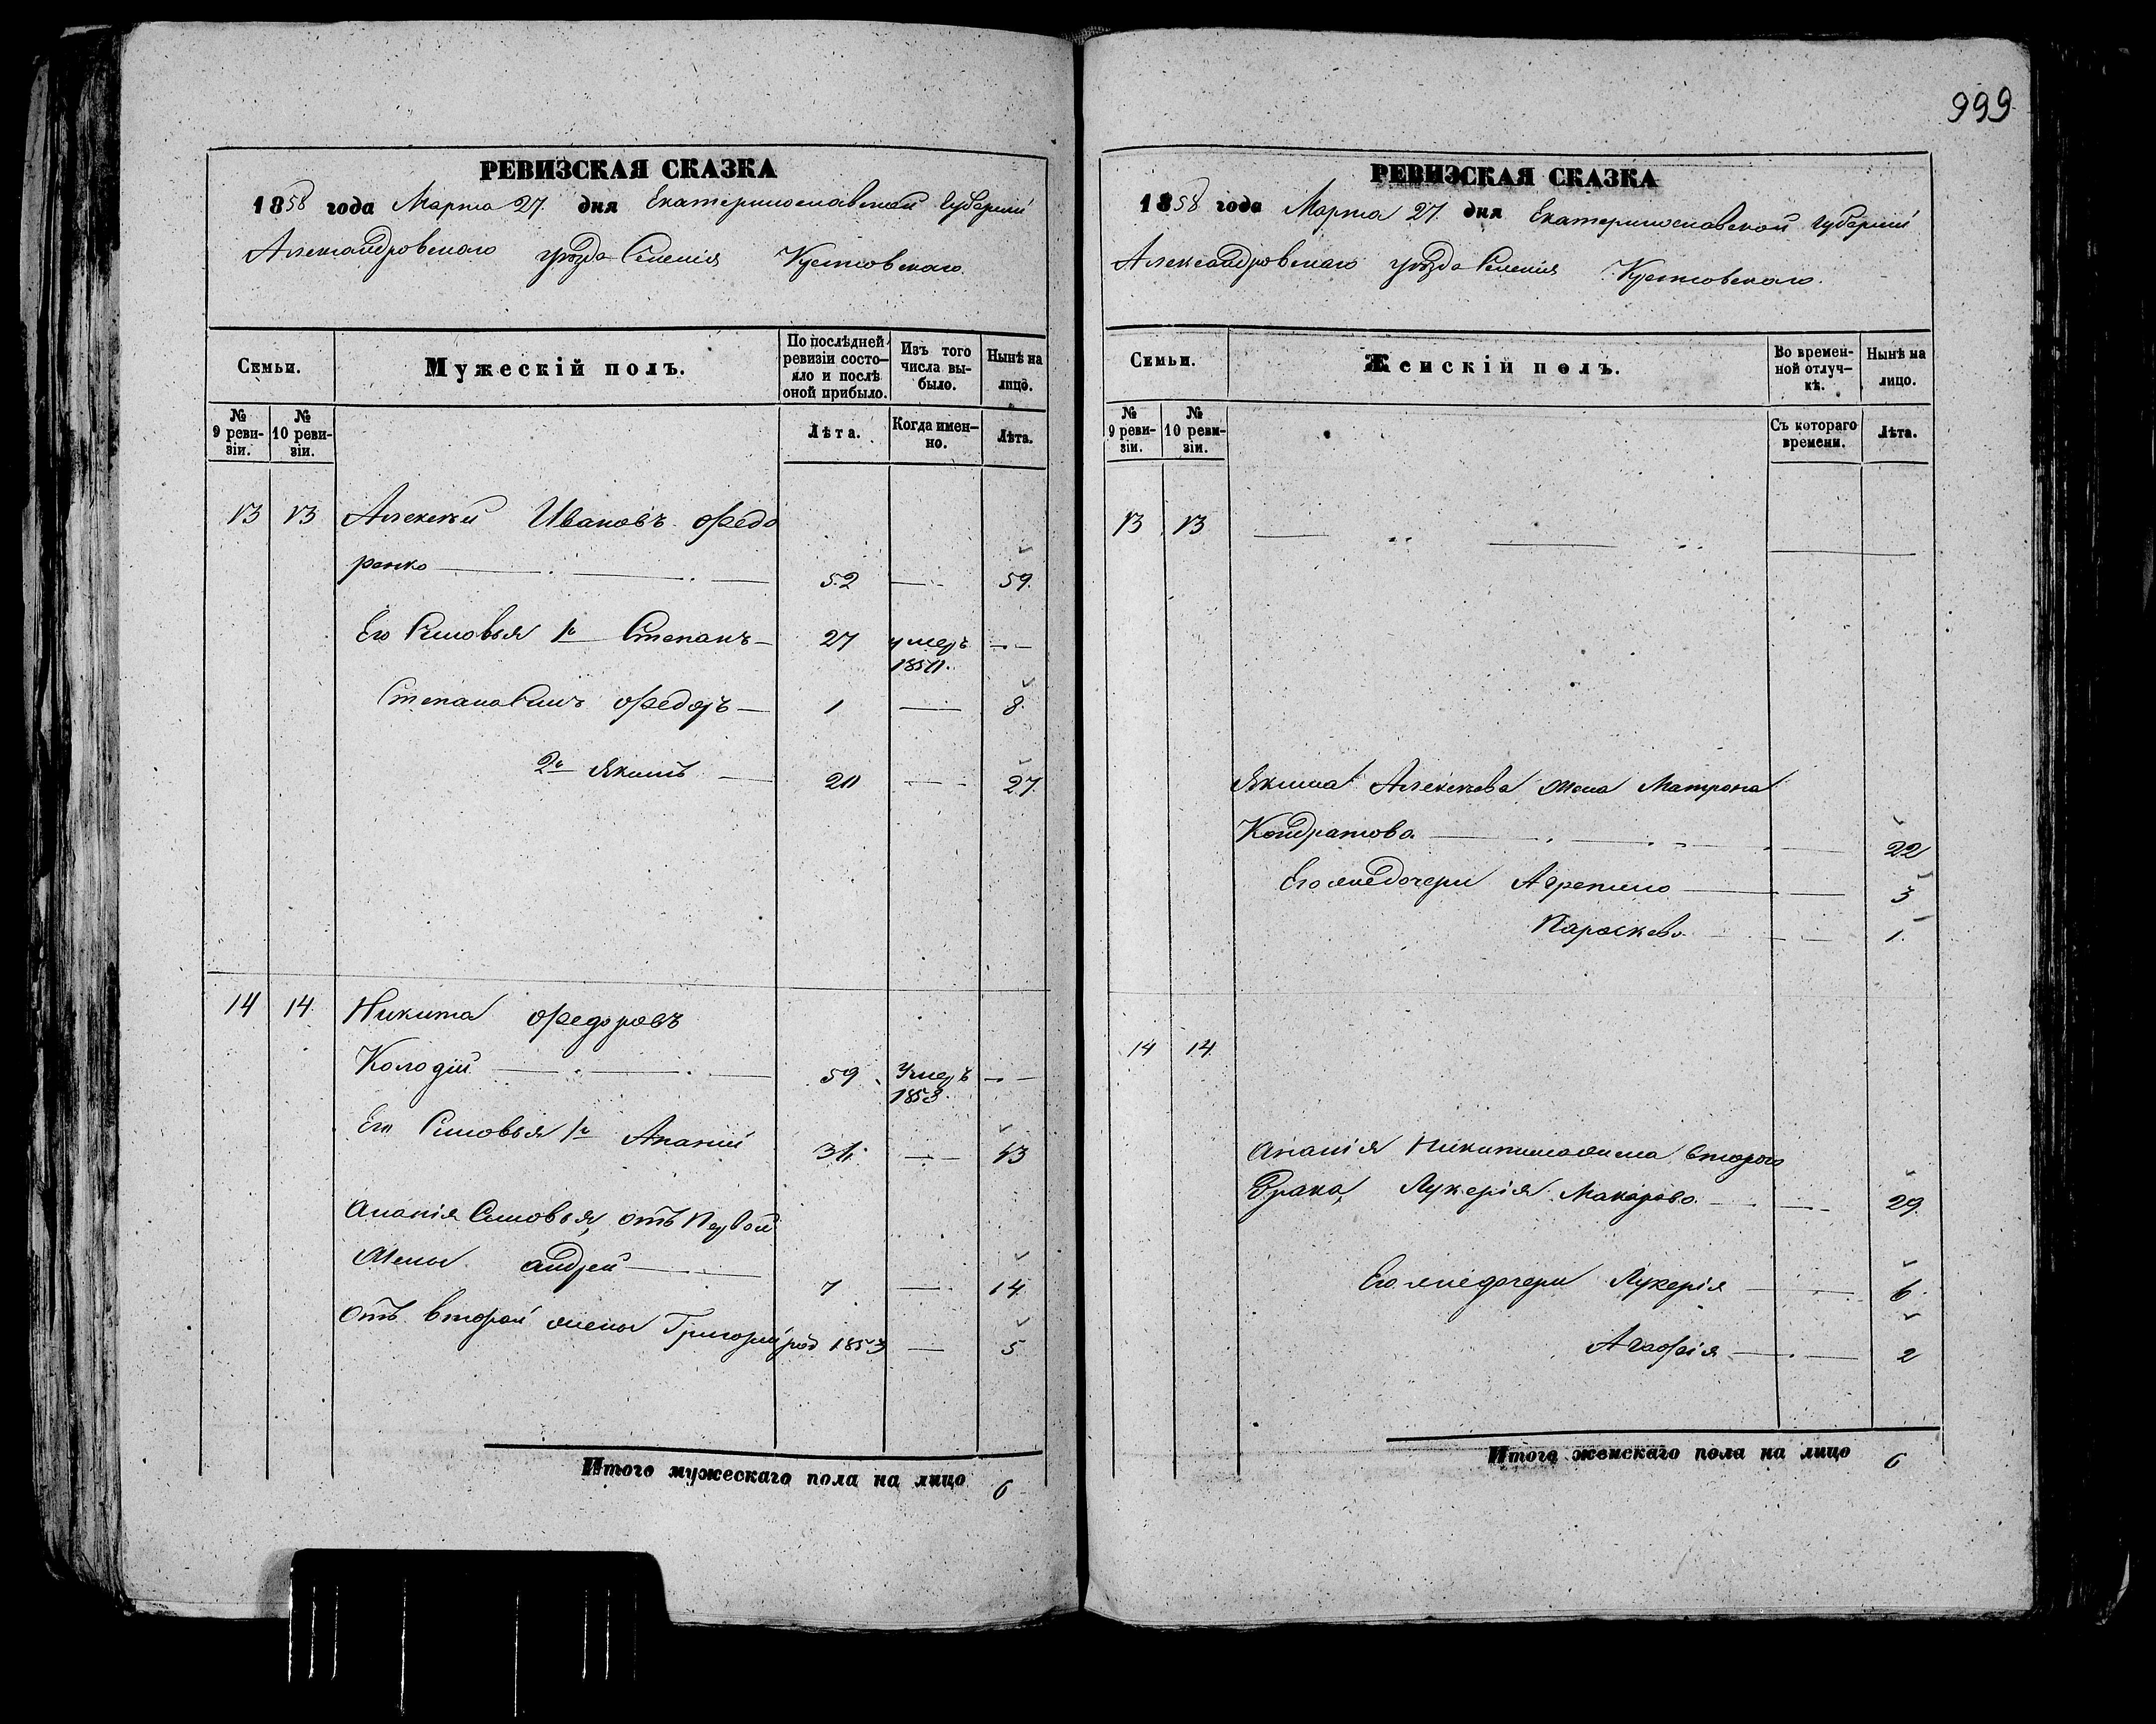 999
РЕВИЗСКАЯ СКАЗКА
1858 года Марта 27. дня Екатеринославской Губерніи
Александровскаго уѣзда Селенія
Семьи.
Мужескій полъ.
По послѣдней ревизіи состояло и послѣ оной прибыло.
Изъ того числа выбыло.
Нынѣ на лицо.
№ 9 ревизіи.
№ 10 ревизіи.
Лѣта.
Когда именно.
Лѣта.
13 13 Алексѣй Ивановъ Федо
ренко 52 — 59.
Его Сыновья 1й Степанъ — 27 умеръ —
Степана Сынъ Федоръ — 1 — 8.
2й Якимъ — 20 — 27.
14 14 Никита Федоровъ
Колодій — 59 Умеръ —
1853.
Его Сыновья 1й Ананій — 43
Ананія Сыновья, отъ Первой
Жены Андрей — 7 — 14.
Отъ второй жены Григорій род 1853 — 5
Итого мужескаго пола на лицо 6
РЕВИЗСКАЯ СКАЗКА
1858 года Марта 27. дня Екатеринославской Губерніи
Александровскаго уѣзда Селенія
Семьи.
Женскій полъ.
Во временной отлучкѣ.
Нынѣ на лицо.
№ 9 ревизіи.
№ 10 ревизіи.
Съ котораго времени.
Лѣта.
13 13 — „ — „ —
Якима Алексѣева жена Матрона
Кондратова — 22
Его же дочери — 3
Параскева — 1.
14 14
Ананія Никитина жена второго
Брака, Лукерія Макарова — 29.
Его же дочери Лукерія — 6.
Агафія — 2
Итого женскаго пола на лицо 6